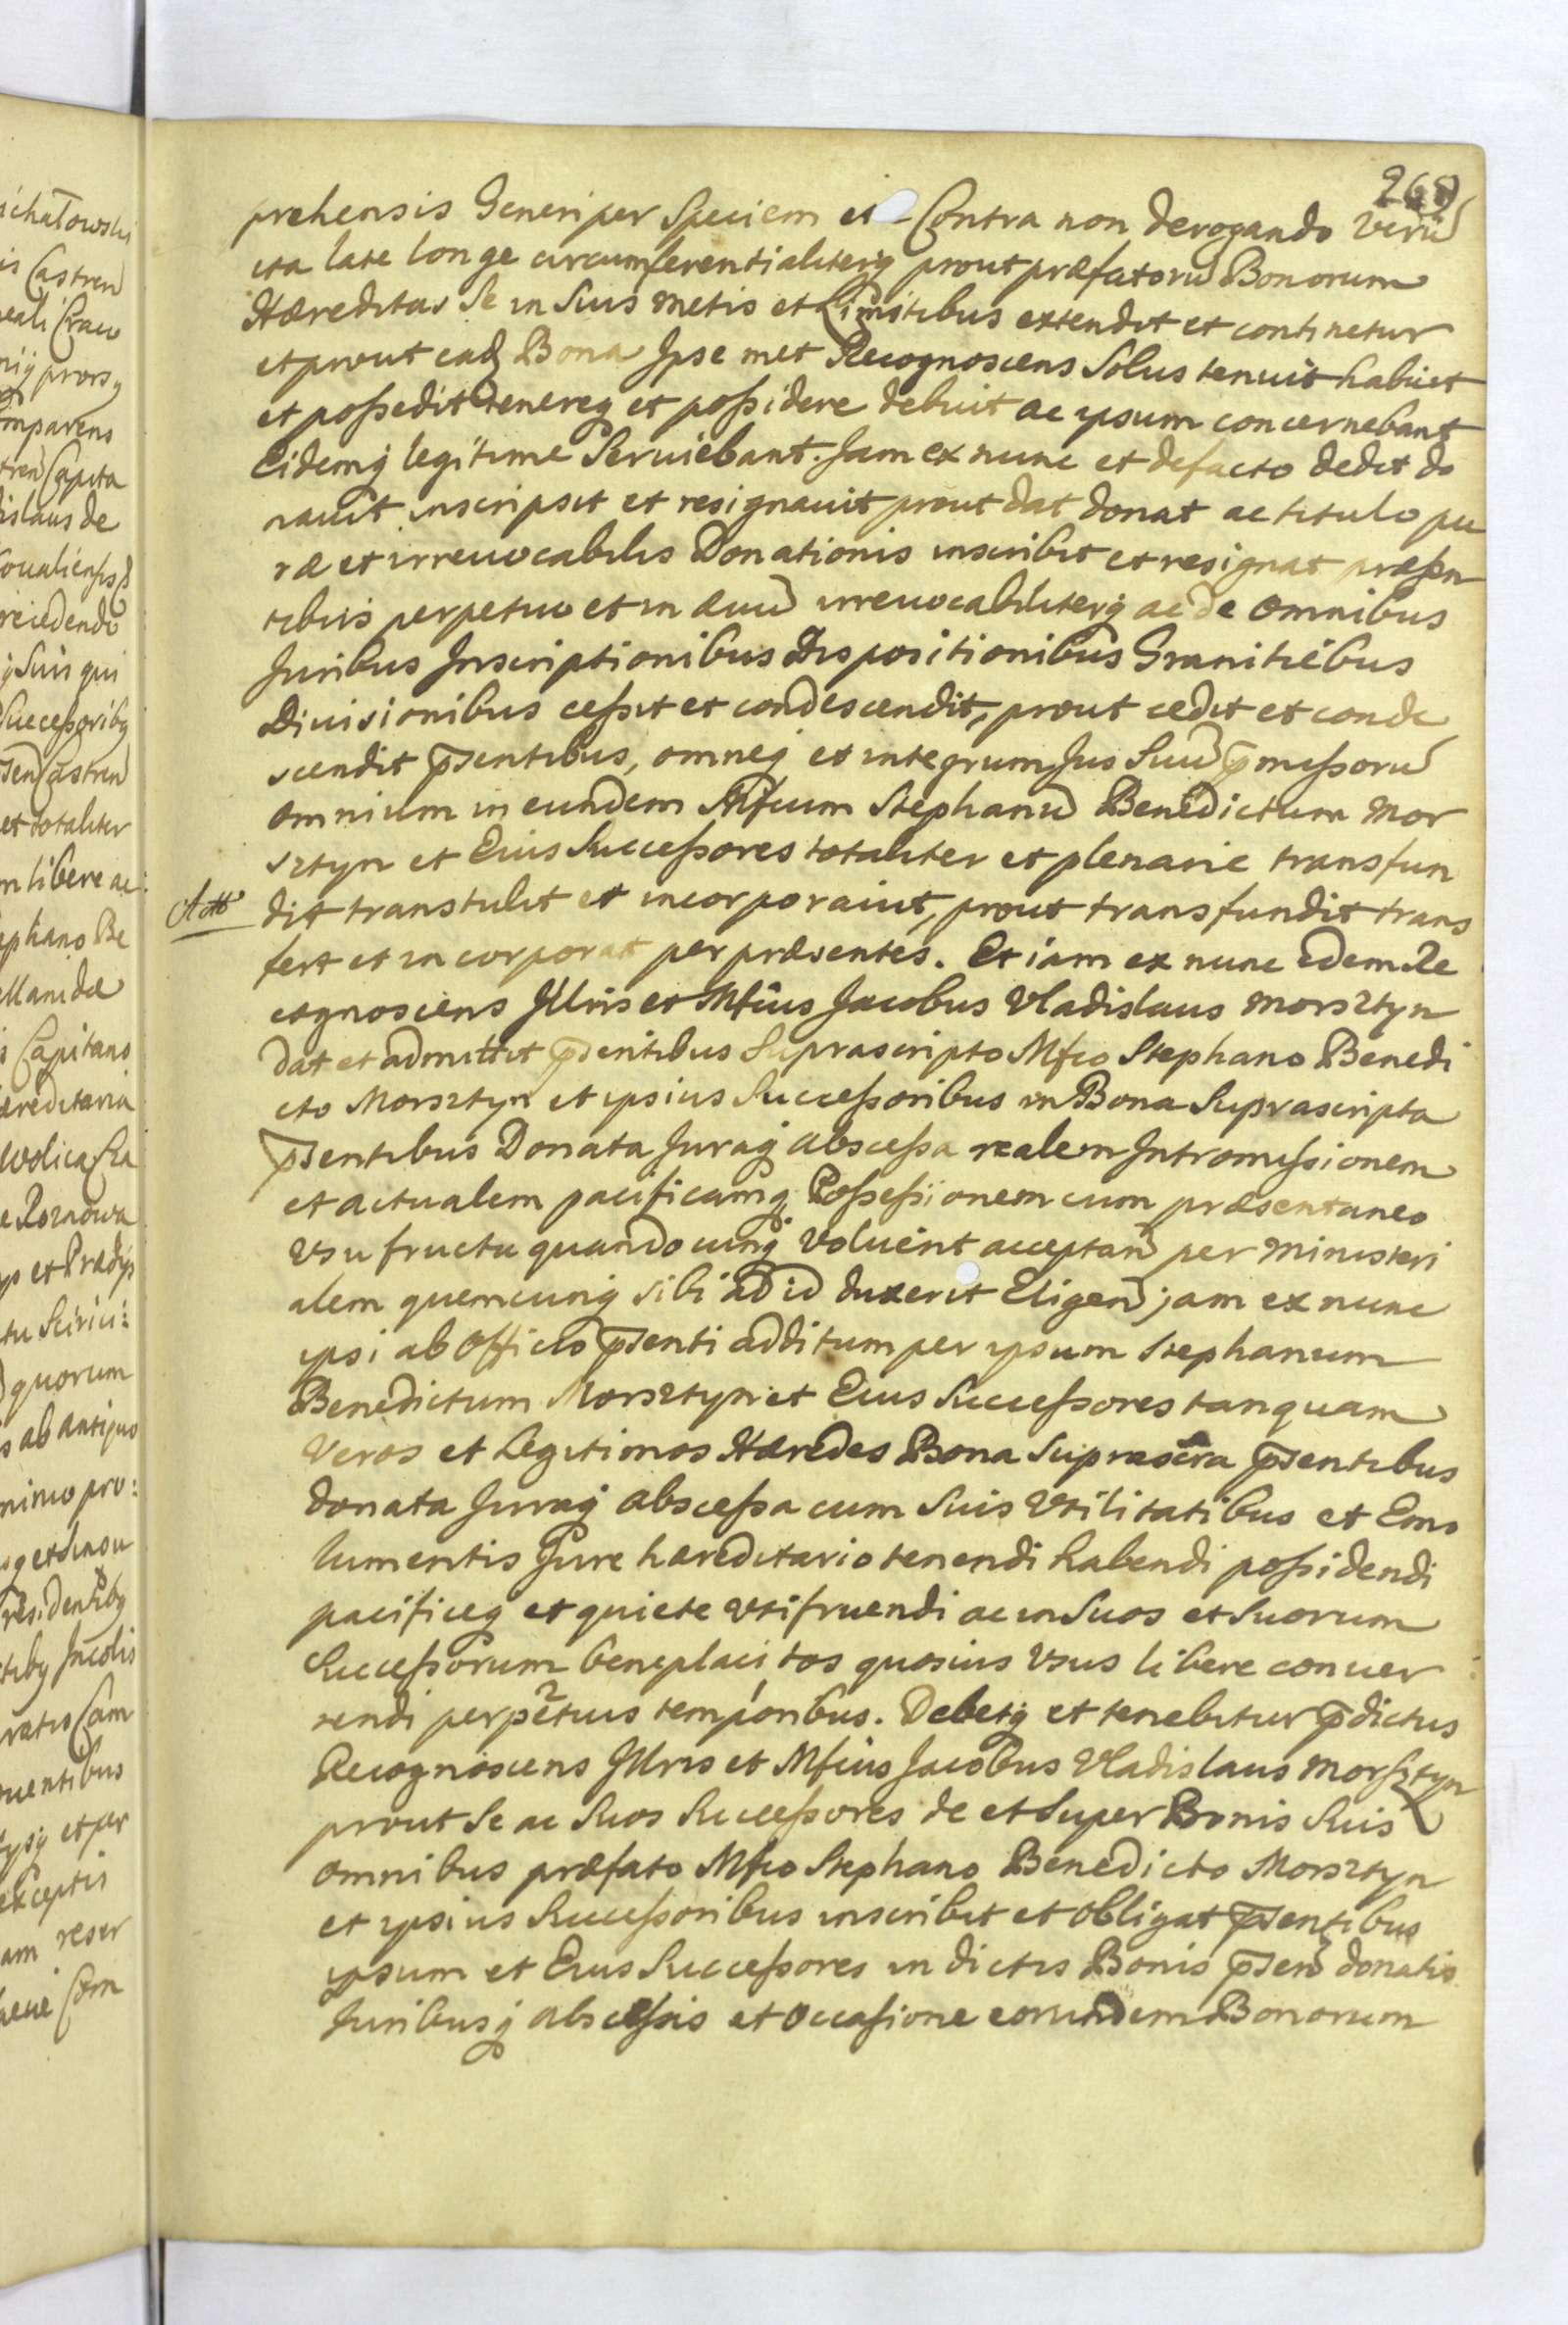 268
prehensis Generi per Speciem et Contra non derogando verũ
ita late longe circumferentialiterq prout præfatorũ Bonorum
Hæreditas Se in Suis metis et Limitibus extendit et continetur
et prout eadẽ Bona Ipse met Recognoscens Solus tenuit habuit
et possedit tenereq et possidere debuit ac ipsum concernebant
Eidemq legitime Seruiebant. Jam ex nunc et defacto dedit do
nauit inscripsit et resignauit prout dat donat ac titulo pu
ræ et irreuocabilis Donationis inscribit et resignat præsen
tibus perpetuo et in æuũ irreuocabiliterq ac de omnibus
Juribus Inscriptionibus Dispositionibus Granitiebus
Diuisionibus cessit et condescendit, prout cedit et conde
scendit p̃sentibus, omneq et integrum Jus Suũ p̃missorũ
omnium in eundem Mfcum Stephanũ Benedictum Mor
sztyn et Eius Successores totaliter et plenarie transfun
dit transtulit et incorporauit, prout transfundit trans
fert et incorporat per præsentes. Et iam ex nunc idem Re
cognoscens Jllris et Mfcus Jacobus Vladislaus Morsztyn
dat et admittit p̃sentibus Suprascripto Mfco Stephano Benedi
cto Morsztyn et ipsius Successoribus in Bona Suprascripta
p̃sentibus Donata Juraq abscessa realem Intromissionem
et actualem pacificamq Possessionem cum præsentaneo
Vsu fructu quandocunq Voluerit acceptan̄ per ministeri
alem quemcunq sibi ad id duxerit Eligen̄ jam ex nunc
ipsi ab Officio p̃senti additum per ipsum Stephanum
Benedictum Morsztyn et Eius Successores tanquam
Veros et Legitimos Hæredes Bona Suprascra p̃sentibus
donata Juraq abscessa cum Suis Vtilitatibus et Emo
lumentis Jure hæreditario tenendi habendi possidendi
pacificeq et quiete vtifruendi ac in Suos et Suorum
Successorum beneplacitos quosuis Vsus libere conuer
tendi perpetuis temporibus. Debetq et tenebitur p̃dictus
Recognoscens Jllris et Mfcus Jacobus Vladislaus Morsztyn
prout Se ac Suos Successores de et Super Bonis Suis
omnibus præfato Mfco Stephano Benedicto Morsztyn
et ipsius Successoribus inscribit et obligat p̃sentibus
ipsum et Eius Successores in dictis Bonis p̃sen̄ donatis
Juribusq abscessis et occasione eorundem Bonorum